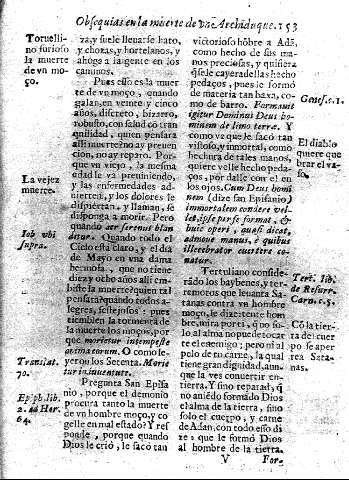 Obsequias en la muerte de Vn Archiduque. 153
Toruelli-
no furioso
la muerte
de vn mo-
ço.
La vejez
muerte.
Iob vbi
supra.
Translat.
70.
Epiph. lib.
2. ad Her.
64.
za, y suele lleuarse hato,
y choças, y hortelanos, y
ahoga a la gente en los
caminos.
Pues esso es la muerte
de vn moço, quando
galan, en veinte y cinco
años, discreto, bizarro,
robusto, con salud cõ tran
quilidad, quien pensara
alli muerte no ay preuen
cion, no ay reparo. Porque
vn viejo, la misma
edad le va preuiniendo,
y las enfermedades aduierten,
y los dolores le
despiertan, y llaman, se
disponga a morir. Pero
quando aer serenus blan
ditur. Quando todo el
Cielo està claro, y el dia
de Mayo en vna dama
hermosa, que no tiene
diez y ocho años alli em-
biste la muerte? quien tal
pensara? quando todos alegres,
festejosos: pues
tiembien la tormenta de
la muerte los moços, porque
morietur intempesta
animaeorum. O como leyeron
los Setenta. Morietur
in iuuentute.
Pregunta San Epifanio,
porque el demonio
procura tanto la muerte
de vn hombre moço, y cogelle
en mal estado? Y responde,
porque quando
Dios le criò, le sacò tan
victorioso hõbre a Adã,
como hecho de sus manos
preciosas, y quisiera
que se cayera de las hecho
pedaços, pues le formò
de materia tan baxa, como
de barro. Formauit
igitur Dominus Deus ho-
minem de limo terræ. Y
como ve que le sacò tan
vistoso, y inmortal, como
hechura de tales manos,
quiere velle hecho pedaços,
por dalle con el en
los ojos. Cum Deus homi
nem (dize san Epifanio)
immortalem condere vel
let, ipse per se format, &
huic operi, quasi dicat,
admoue manus, e quibus
illecebrator euertere conatur.
Tertuliano considerado
los baybenes, y terremotos
que leuanta Satanas
contra vn hombre
moço, le dize: tente hombre,
mira por ti, q̃ no solo
al alma no puede tocarte
el enemigo; pero ni al
polo de tu carne, la qual
tiene grande dignidad, aunque
la ves conuertir en
tierra. Y sino reparad, q̃
no añedio formado Dios
el alma de la tierra, sino
solo el cuerpo, y carne
de Adan, con todo esso dire:
que le formò Dios
al hombre de la tierra.
V For-
Genes. 2.1.
El diablo
quiere que
brar el va-
so.
Tert. lib.
de Resurr.
Carn. c.5.
Cõ la tier-
ra del cuer
po se aper
rea Sata-
nas.